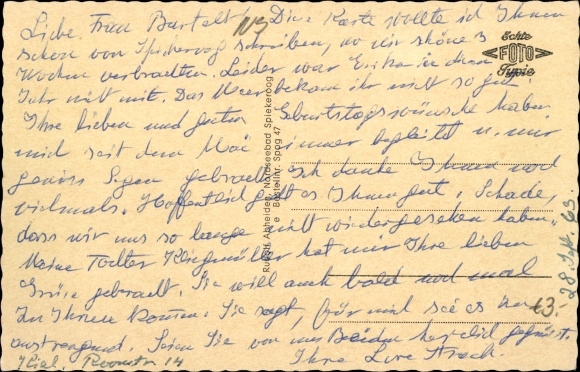 Liebe Frau Bartelt! Diese Karte wollte ich Ihnen
schon von Spiekeroog schreiben, wo wir schöne 3
Wochen verbrachten. Leider war Erika in diesem
Jahr nicht mit. Das Meer bekam ihr nicht so gut.
Ihre lieben und guten Geburtstagswünsche haben
mich seit dem Mai immer begleitet u. mir
gewiss Segen gebracht. Ich danke Ihnen noch
vielmals. Hoffentlich geht es Ihnen gut. Schade,
dass wir uns so lange nicht wiedergesehen haben.
Meine Tochter hat mir Ihre lieben
Grüsse gebracht. Sie will auch bald noch mal
zu Ihnen kommen. Sie sagt, für mich sei es zu
anstrengend. Seien Sie von uns Beiden herzlich gegrüsst.
Ihre
Kiel, Roonstr 14
Echte
FOTO
Typie
Rudolf Abheiden, Nordseebad Spiekeroog
Bestellnr. Spog 47
28. Sept. 63.
63.